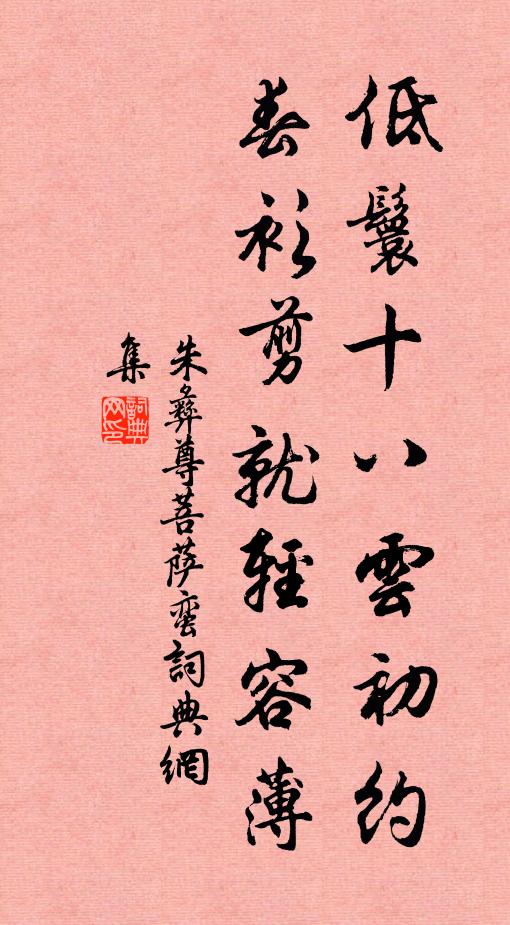 低鬟十八雲初約
春衫剪就輕容薄
朱彝尊菩薩蛮詞典網
集
詞典
网印